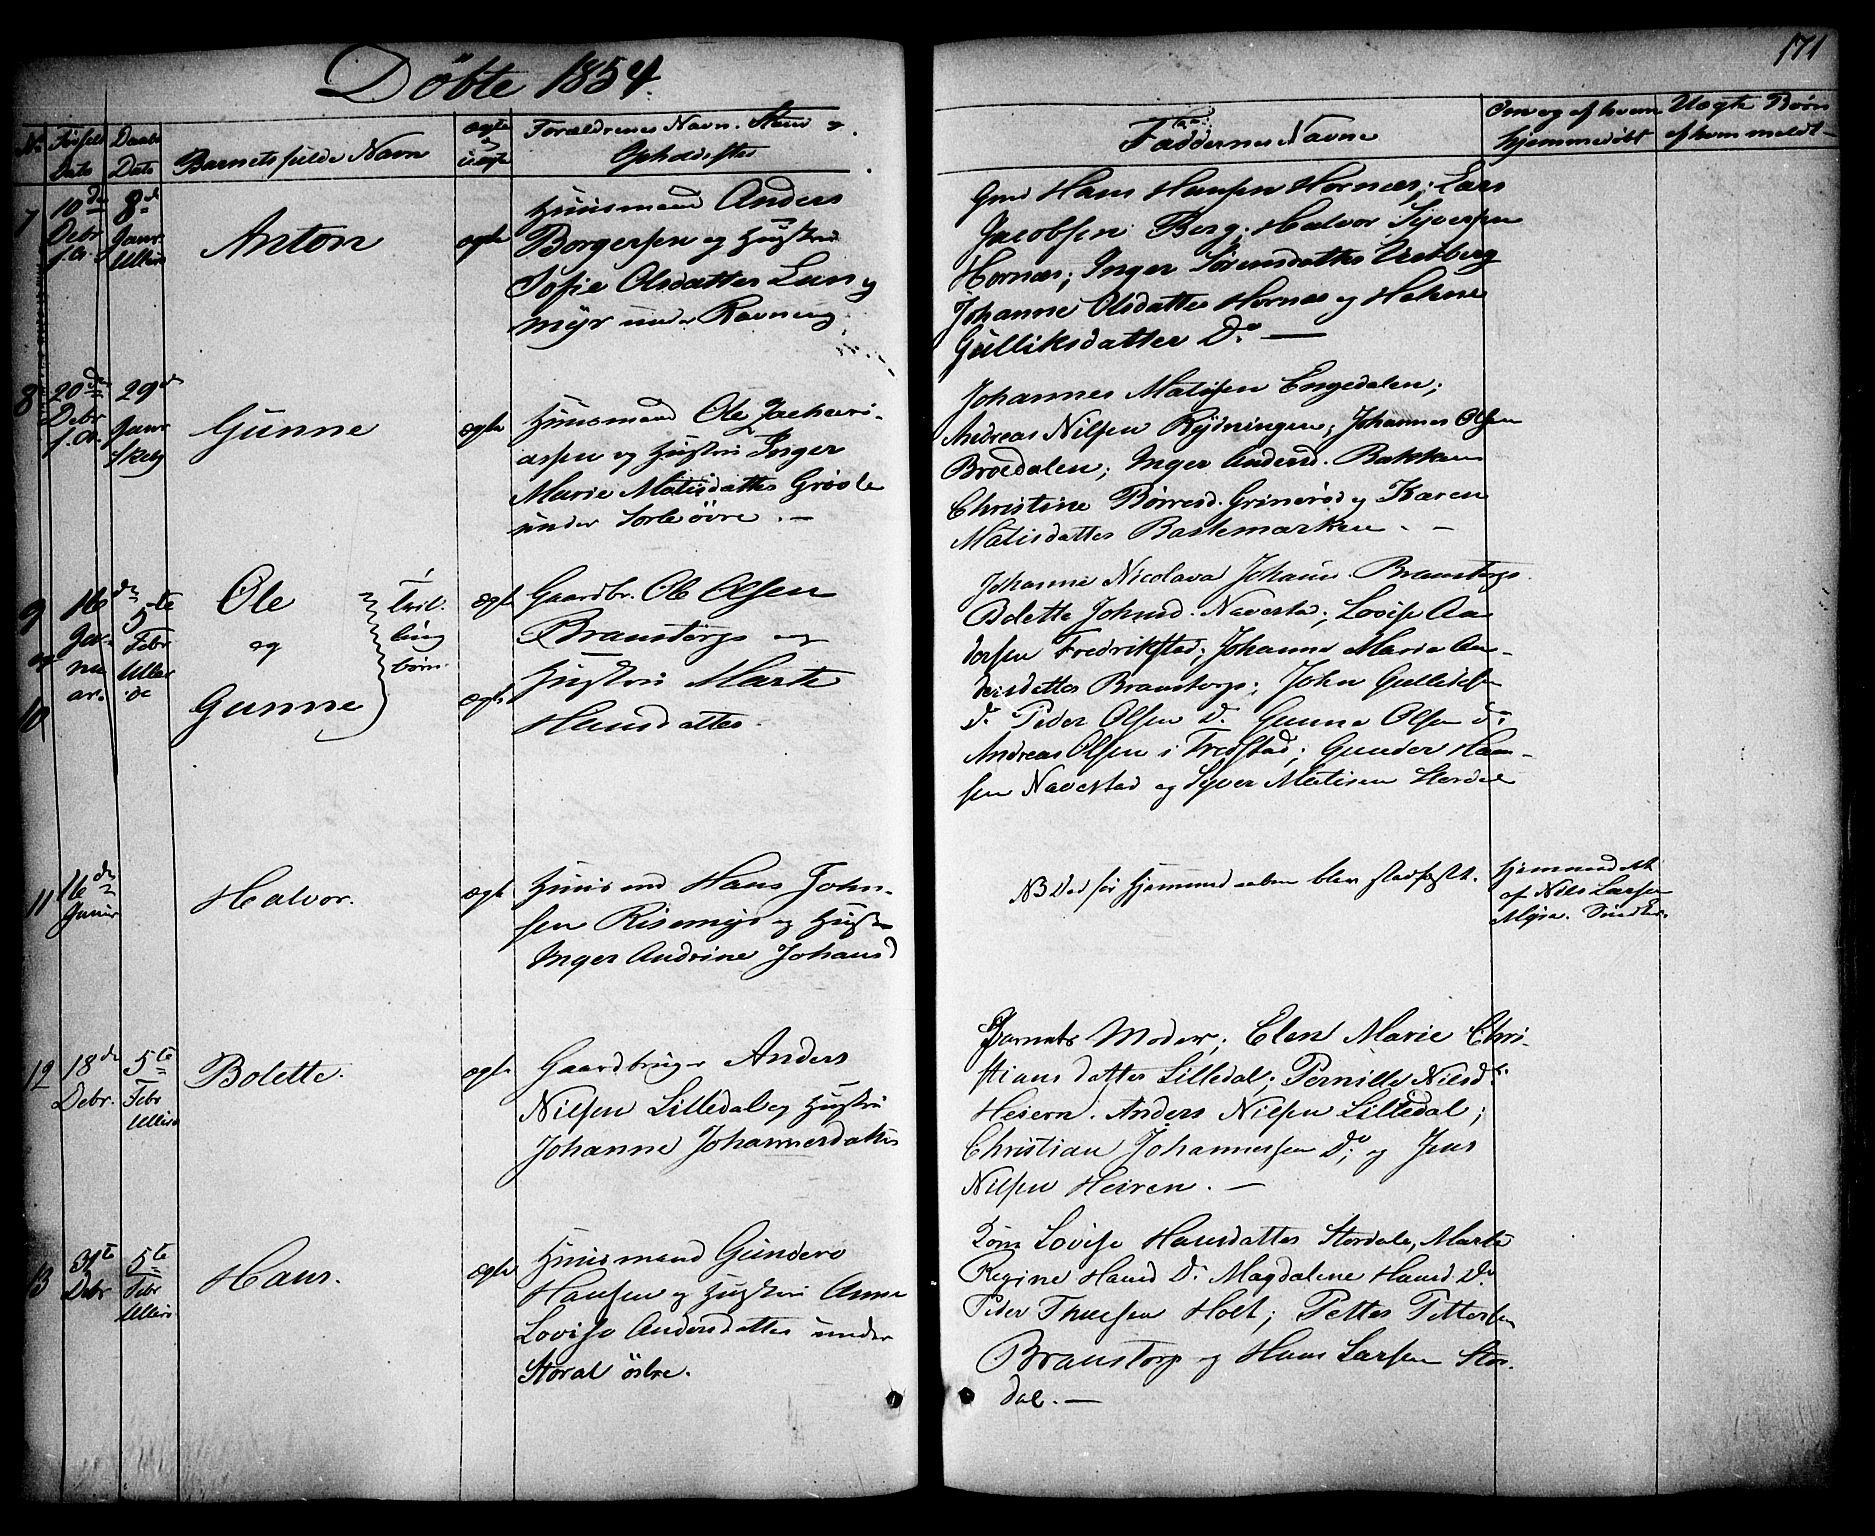 Døbte 1854.
171
No
Fødsels Dato
Daabs Dato
Barnets fulde Navn
ægte
uægte
Forældrenes Navn. Stand og
Opholdssted
Faddernes Navne
Om og af hvem
hjemmedøbt
Uægte Børn
af hvem meldt
7
10de
Debr
f. A.
8de
Janr
Ullerø
Anton
ægte
Huusmand Anders
Borgersen og Hustru
Sofie Olsdatter Lun
myr under Ravneng
Grd Hans Hansen Hornæs; Lars
Jacobsen Berg; Halvor Syversen
Hornæs; Inger Sørensdatter Vestberg
Johanne Olsdatter Hornæs og Helene
Gulliksdatter Do —
8
20de
Debr
f. A.
29de
Janr
Skeb
Gunne
ægte
Huusmand Ole Zachari-
assen og Hustru Inger
Marie Matisdatter Grøsle
under Sorbeøvre. —
Johannes Matisen Engedalen;
Andreas Nilsen Rydningen; Johannes Olsen
Broedalen; Inger Andersd. Bakken
Christine Børresd. Grinerød og Karen
Matisdatter Bastemarken. —
9
og
10
16de
Ja-
nu
ar.
5te
Febr
Ullerø
Ole
og
Gunne
Tvil-
ling
børn.
ægte
ægte
Gaardbr. Ole Olsen
Branstorp og
Hustru Marte
Hansdatter.
Johanne Nicolava Johans. Branstorp.
Bolette Johnsd. Navestad; Lovise An
dersen Fredrikstad; Johanne Marie An-
dersdatter Branstorp; John Gulliksen
Do Peder Olsen Do Gunne Olsen Do
Andreas Olsen i Fredstad; Gunder Han-
sen Navestad og Syver Matisen Stordal
11
16de
Januar
Halvor.
ægte
Huusmand Hans John-
sen Risemyr og Hustru
Inger Andrine Johansd
NB Død før Hjemmedaaben blev stadfæstet.
Hjemmedøbt
af Nils Larsen
Myra.
12
18de
Debr.
5te
Febr
Ullerø
Bolette.
ægte
Gaardbruger Anders
Nilsen Lilledal og Hustru
Johanne Johannesdatter
Barnets Moder; Elen Marie Chri-
stiansdatter Lilledal; Pernille Nilsd.
Heiern. Anders Nilsen Lilledal;
Christian Johannessen Do; og Jens
Nilsen Heiren. —
13
31te
Debr
5te
Febr
Ullerø
Hans.
ægte
Huusmand Gundero
Hansen og Hustru Anne
Lovise Andersdatter under
Storal østre.
Lovise Hansdatter Stordale, Marte
Regine Hansd Do Magdalene Hansd Do
Peder Thuesen Holt; Petter Pettersen
Branstorp og Hans Larsen Stor-
dal. —